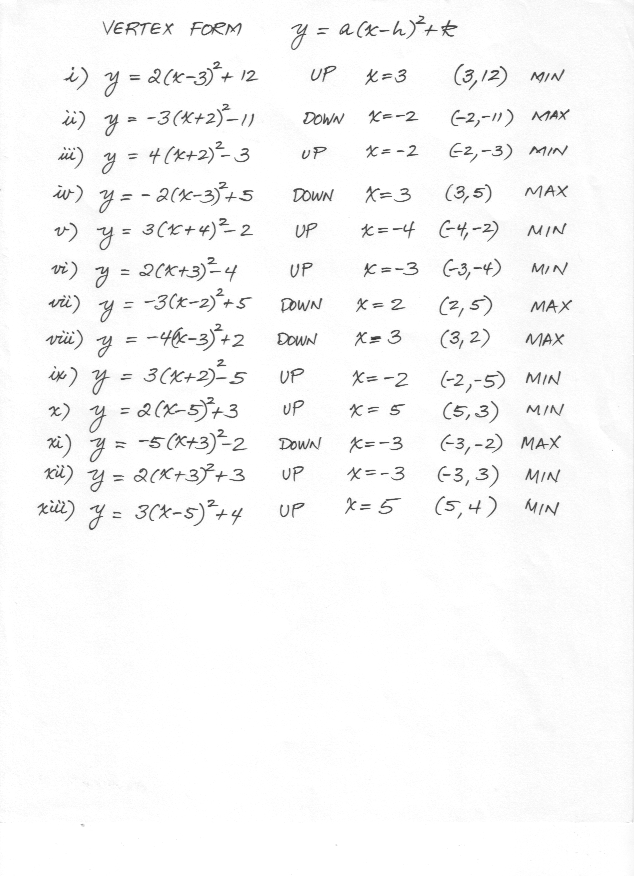 VERTEX FORM y = a(x-h)²+k
i) y = 2(x-3)²+12 UP x=3 (3,12) MIN
ii) y = -3(x+2)²-11 DOWN x=-2 (-2,-11) MAX
iii) y = 4(x+2)²-3 UP x=-2 (-2,-3) MIN
iv) y = -2(x-3)²+5 DOWN x=3 (3,5) MAX
v) y = 3(x+4)²-2 UP x=-4 (-4,-2) MIN
vi) y = 2(x+3)²-4 UP x=-3 (-3,-4) MIN
vii) y = -3(x-2)²+5 DOWN x=2 (2,5) MAX
viii) y = -4(x-3)²+2 DOWN x=3 (3,2) MAX
ix) y = 3(x+2)²-5 UP x=-2 (-2,-5) MIN
x) y = 2(x-5)²+3 UP x=5 (5,3) MIN
xi) y = -5(x+3)²-2 DOWN x=-3 (-3,-2) MAX
xii) y = 2(x+3)²+3 UP x=-3 (-3,3) MIN
xiii) y = 3(x-5)²+4 UP x=5 (5,4) MIN